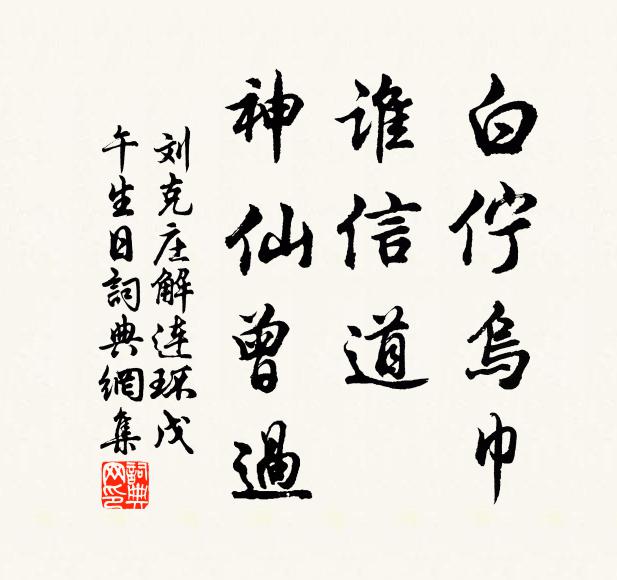 白佇烏巾
谁信道
神仙曾過
刘克庄解连环戊
午生日詞典網集
詞典网印